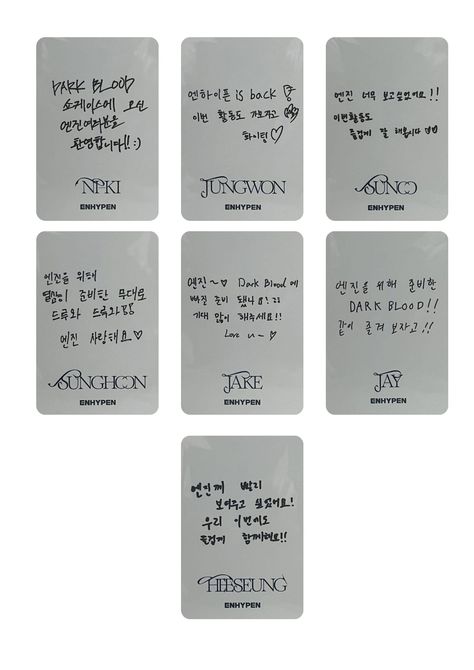 DARK BLOOD
쇼케이스에 오신
엔진여러분을
환영합니다!! :)
NI-KI
ENHYPEN
엔하이픈 is back
이번 활동도 가보자고
화이팅♡
JUNGWON
ENHYPEN
엔진 너무 보고싶었어요!!
이번활동도
즐겁게 잘 해봅시다
SUNOO
ENHYPEN
엔진을 위해
열심히 준비한 무대로
드루와 드루와
엔진 사랑해요♡
SUNGHOON
ENHYPEN
엔진~♡ Dark Blood에
빠질 준비 됐나요!
기대 많이 해주세요!!
Love u~♡
JAKE
ENHYPEN
엔진을 위해 준비한
DARK BLOOD!!
같이 즐겨 보자고!!
JAY
ENHYPEN
엔진께 빨리
보여주고 싶었어요!
우리 이번에도
즐겁게 함께해요!!
HEESEUNG
ENHYPEN